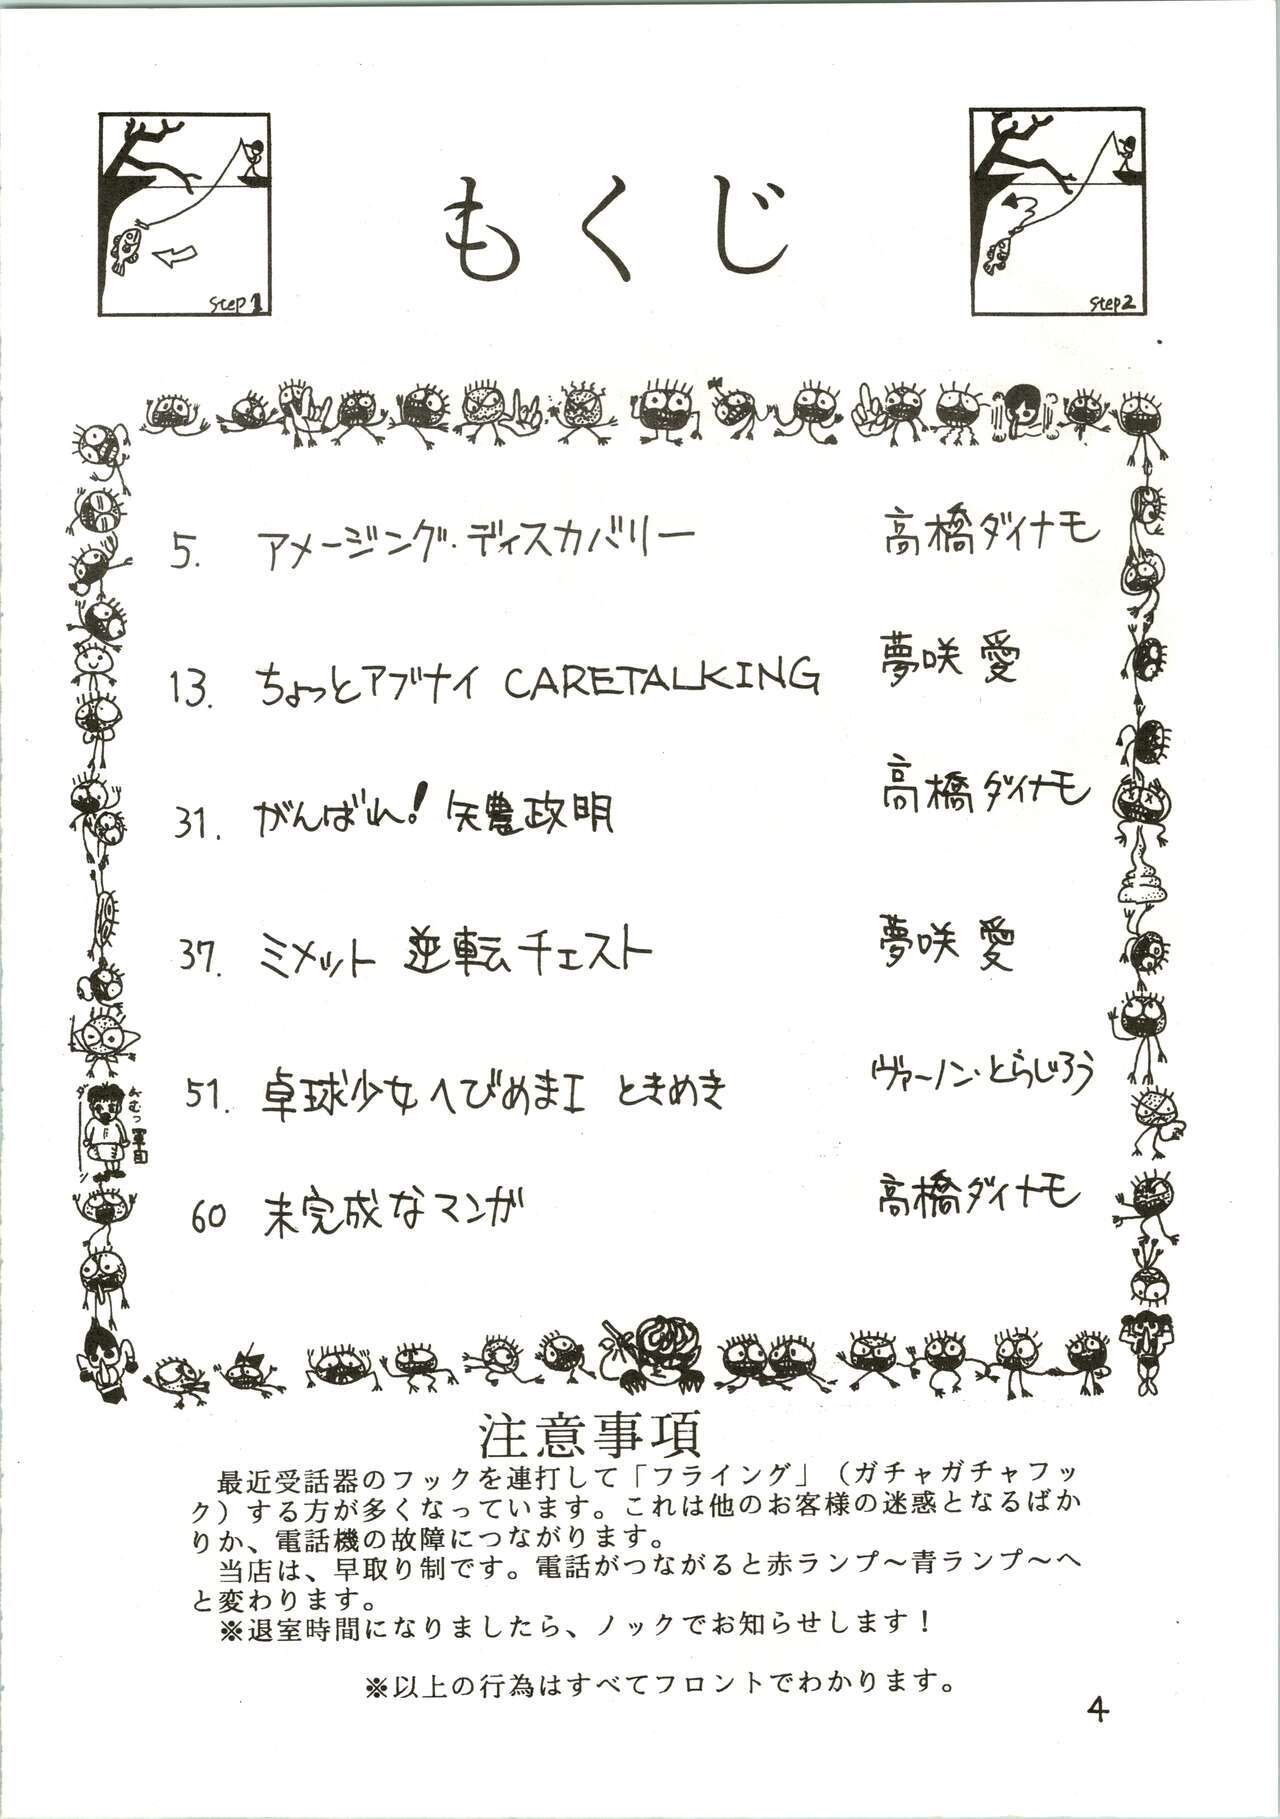 もくじ
step1
step2
5. アメージング・ディスカバリー 高橋ダイナモ
13. ちょっとアブナイ CARETALKING 夢咲 愛
31. がんばれ!矢豊政明 高橋ダイナモ
37. ミメット 逆転チェスト 夢咲 愛
51. 卓球少女へびめまI ときめき ヴァーノン・とらじろう
60 未完成なマンガ 高橋ダイナモ
おむつ軍団
注意事項
最近受話器のフックを連打して「フライング」(ガチャガチャフッ
ク)する方が多くなっています。これは他のお客様の迷惑となるばか
りか、電話機の故障につながります。
当店は、早取り制です。電話がつながると赤ランプ〜青ランプ〜へ
と変わります。
※退室時間になりましたら、ノックでお知らせします!
※以上の行為はすべてフロントでわかります。
4